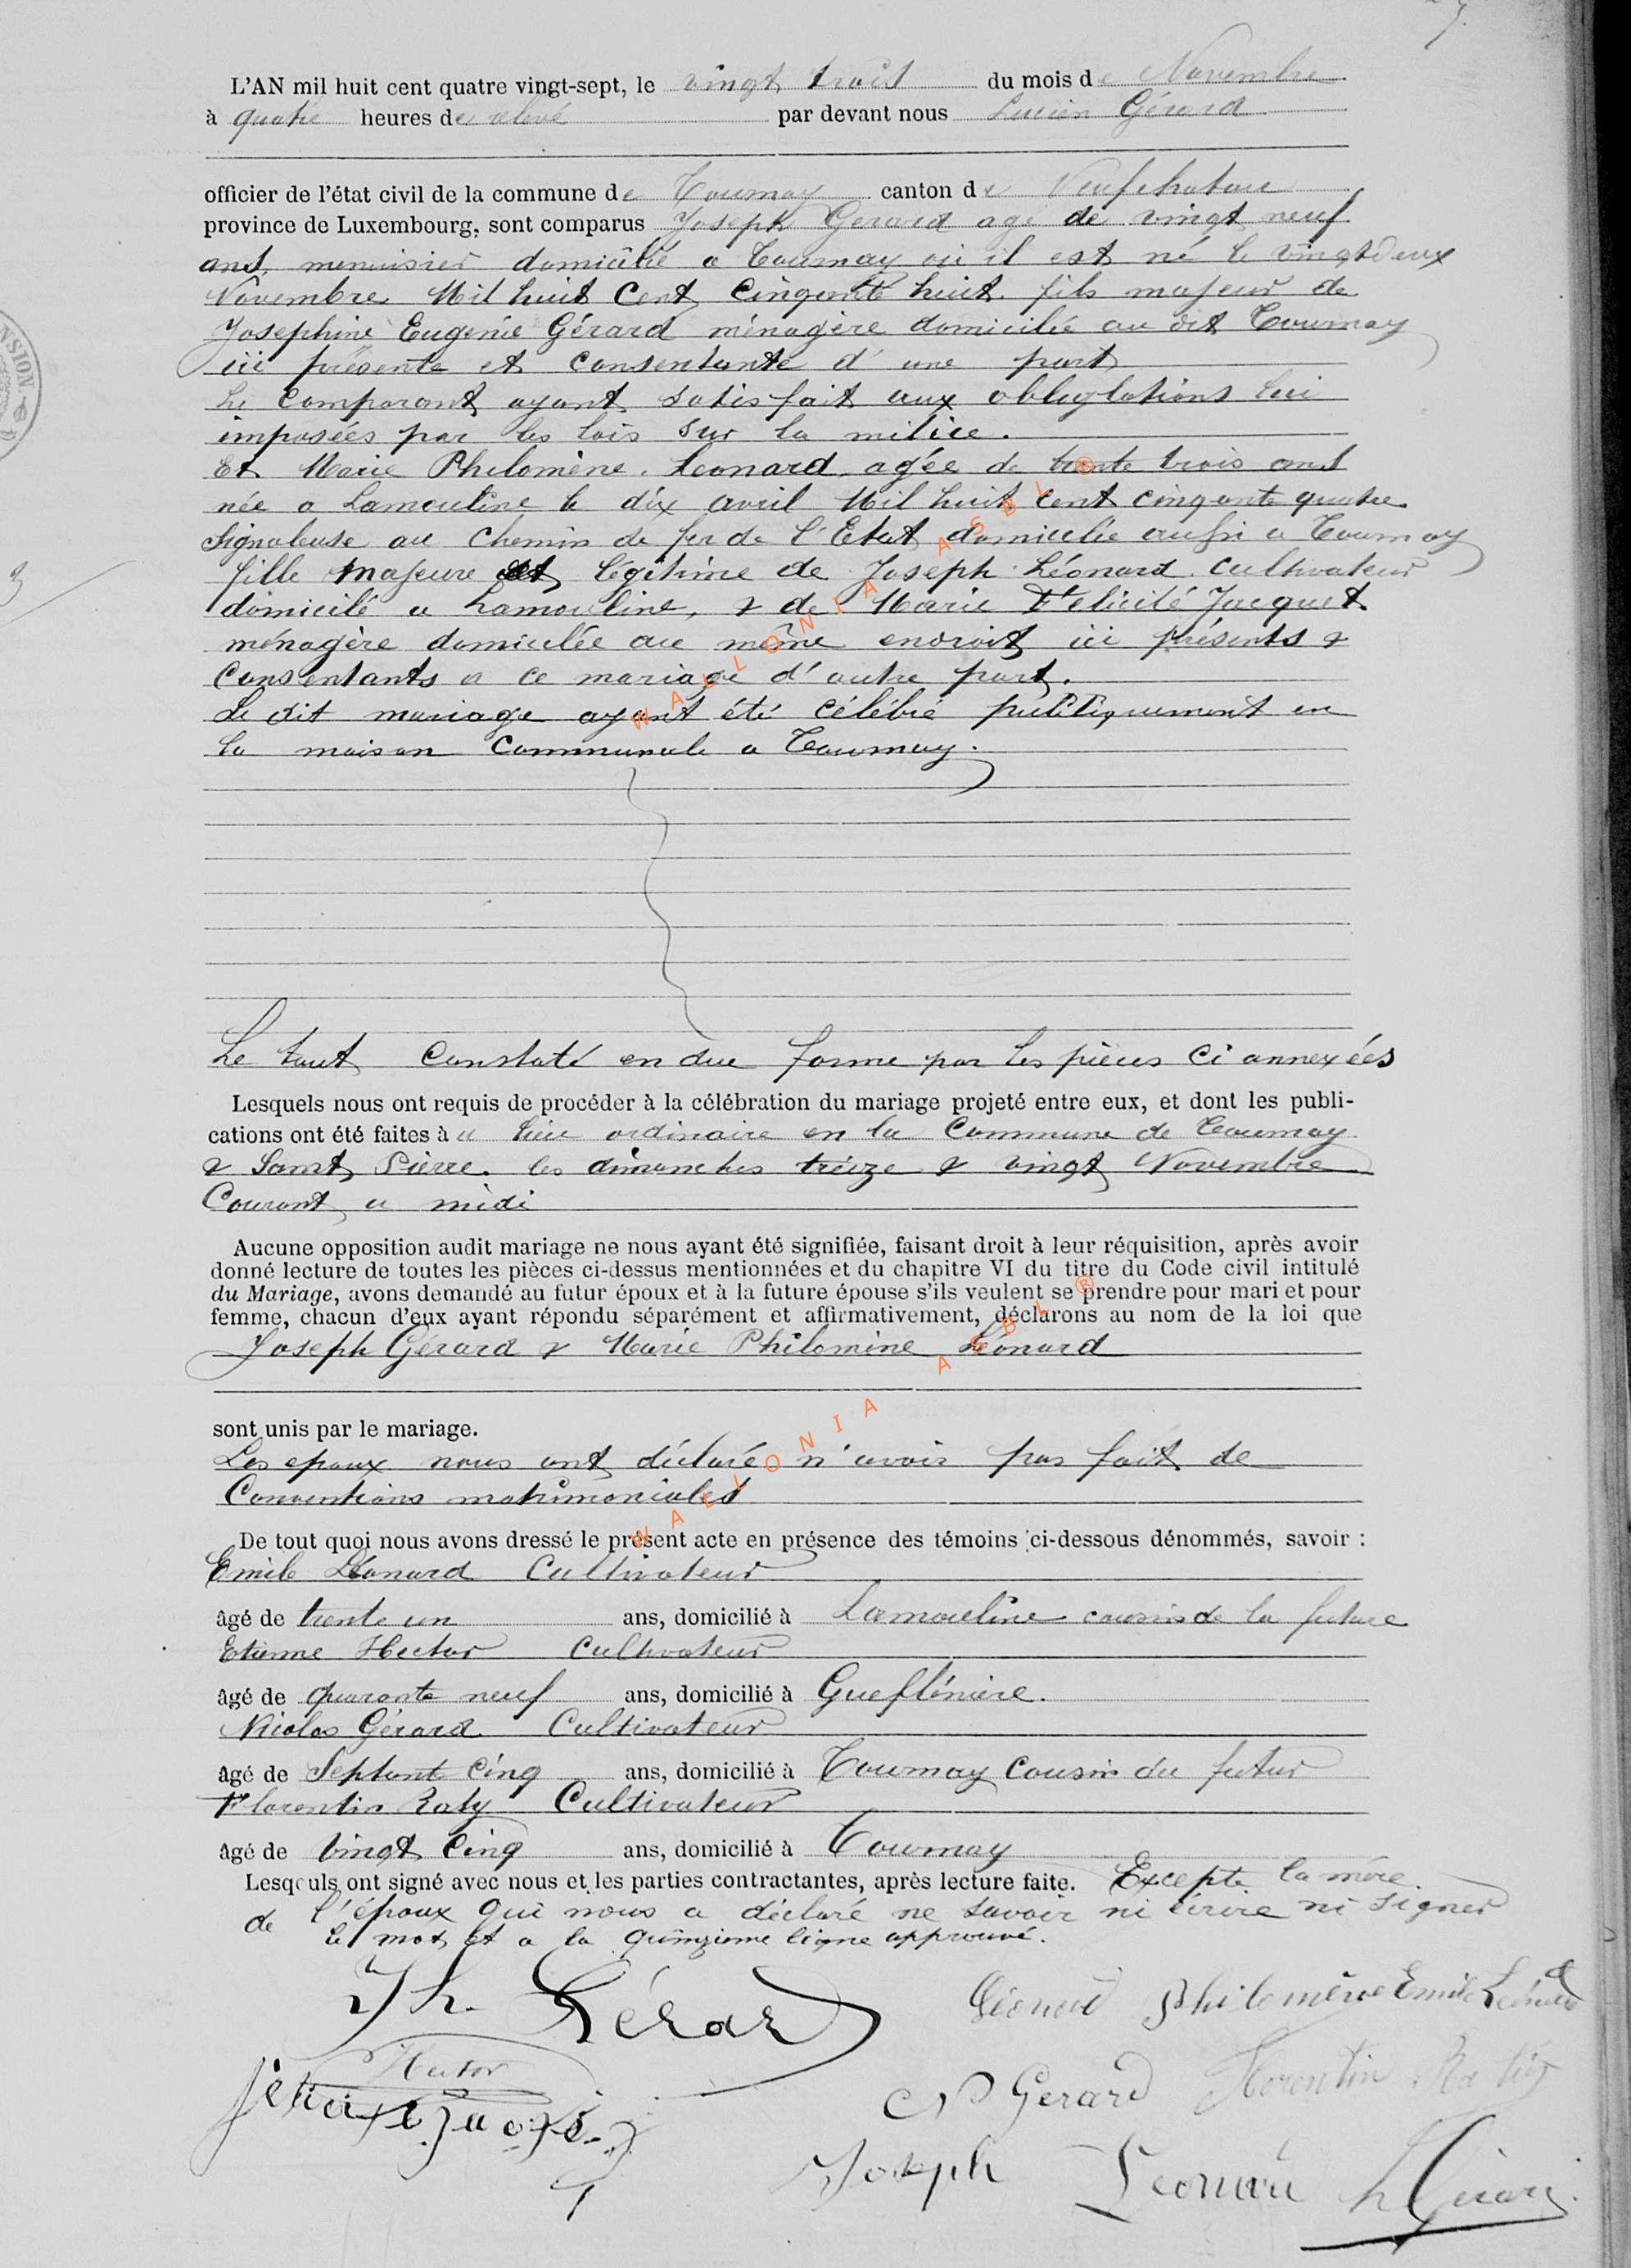 L'AN mil huit cent quatre vingt-sept, le vingt trois du mois de Novembre
à quatre heures de relevé par devant nous Lucien Gérard
officier de l'état civil de la commune de Tournay canton de Neufchateau
province de Luxembourg, sont comparus Joseph Gerard agé de vingt neuf
ans, menuisier domicilié a Tournay où il est né le vingt deux
Novembre Mil huit Cent Cinquante huit. fils majeur de
Josephine Eugenie Gérard ménagère domiciliée au dit Tournay
ici présente et consentante d'une part
Le Comparant ayant satisfait aux obligations lui
imposées par les lois sur la milice.
Et Marie Philomène Leonard agée de trente trois ans
née a Lamouline le dix avril Mil huit cent cinquante quatre
Signaleuse au Chemin de fer de l'Etat domiciliée aussi a Tournay
fille majeure et légitime de Joseph Léonard Cultivateur
domicilé a Lamouline, & de Marie Félicité Jacquet
ménagère domiciliée au même endroit ici présents &
Consentants a ce mariage d'autre part.
Le dit mariage ayant été célébré publiquement en
la maison Communale a Tournay.
Le tout Constaté en due forme par les pièces Ci annexées
Lesquels nous ont requis de procéder à la célébration du mariage projeté entre eux, et dont les publi-
cations ont été faites àu lieu ordinaire en la Commune de Tournay
& Saint Pierre. les dimanches treize & vingt Novembre
Courant a midi
Aucune opposition audit mariage ne nous ayant été signifiée, faisant droit à leur réquisition, après avoir
donné lecture de toutes les pièces ci-dessus mentionnées et du chapitre VI du titre du Code civil intitulé
du Mariage, avons demandé au futur époux et à la future épouse s'ils veulent se prendre pour mari et pour
femme, chacun d'eux ayant répondu séparément et affirmativement, déclarons au nom de la loi que
Joseph Gérard & Marie Philomène Léonard
sont unis par le mariage.
Les epoux nous ont déclaré n'avoir pas fait de
Conventions matrimoniales
De tout quoi nous avons dressé le présent acte en présence des témoins ci-dessous dénommés, savoir :
Emile Léonard Cultivateur
âgé de trente un ans, domicilié à Lamouline cousin de la future
Etienne Hector Cultivateur
âgé de quarante neuf ans, domicilié à Gueflénière.
Nicolas Gérard Cultivateur
âgé de Septante Cinq ans, domicilié à Tournay Cousin du futur
Florentin Roty Cultivateur
âgé de Vingt Cinq ans, domicilié à Tournay
Lesquels ont signé avec nous et les parties contractantes, après lecture faite. Excepte la mère
de l'époux qui nous a déclaré ne savoir ni écrire ni signer
le mot et a la quinzieme ligne approuvé.
Jh. Gérard Léonard Philomène Emile Léonard
Hector
N Gerard Florentin
Joseph Leonard L Gérard
WALLONIA ASBL ®
WALLONIA ASBL ®